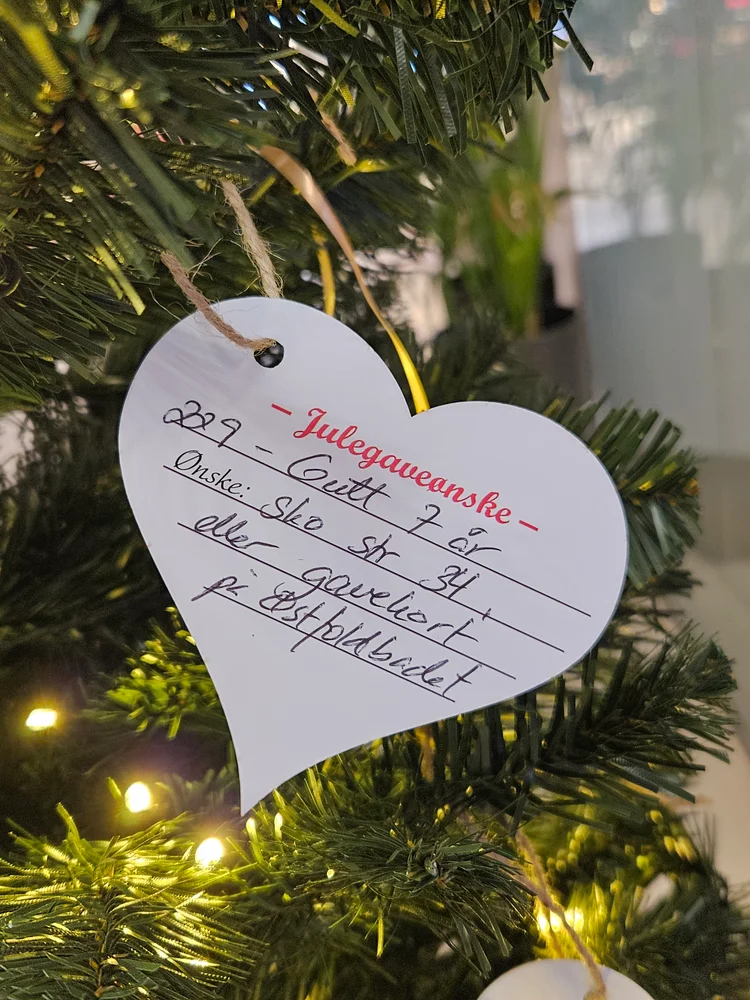 - Julegaveønske -
229 - Gutt 7 år
Ønske: Sko str 34
eller gavekort
på Østfoldbadet